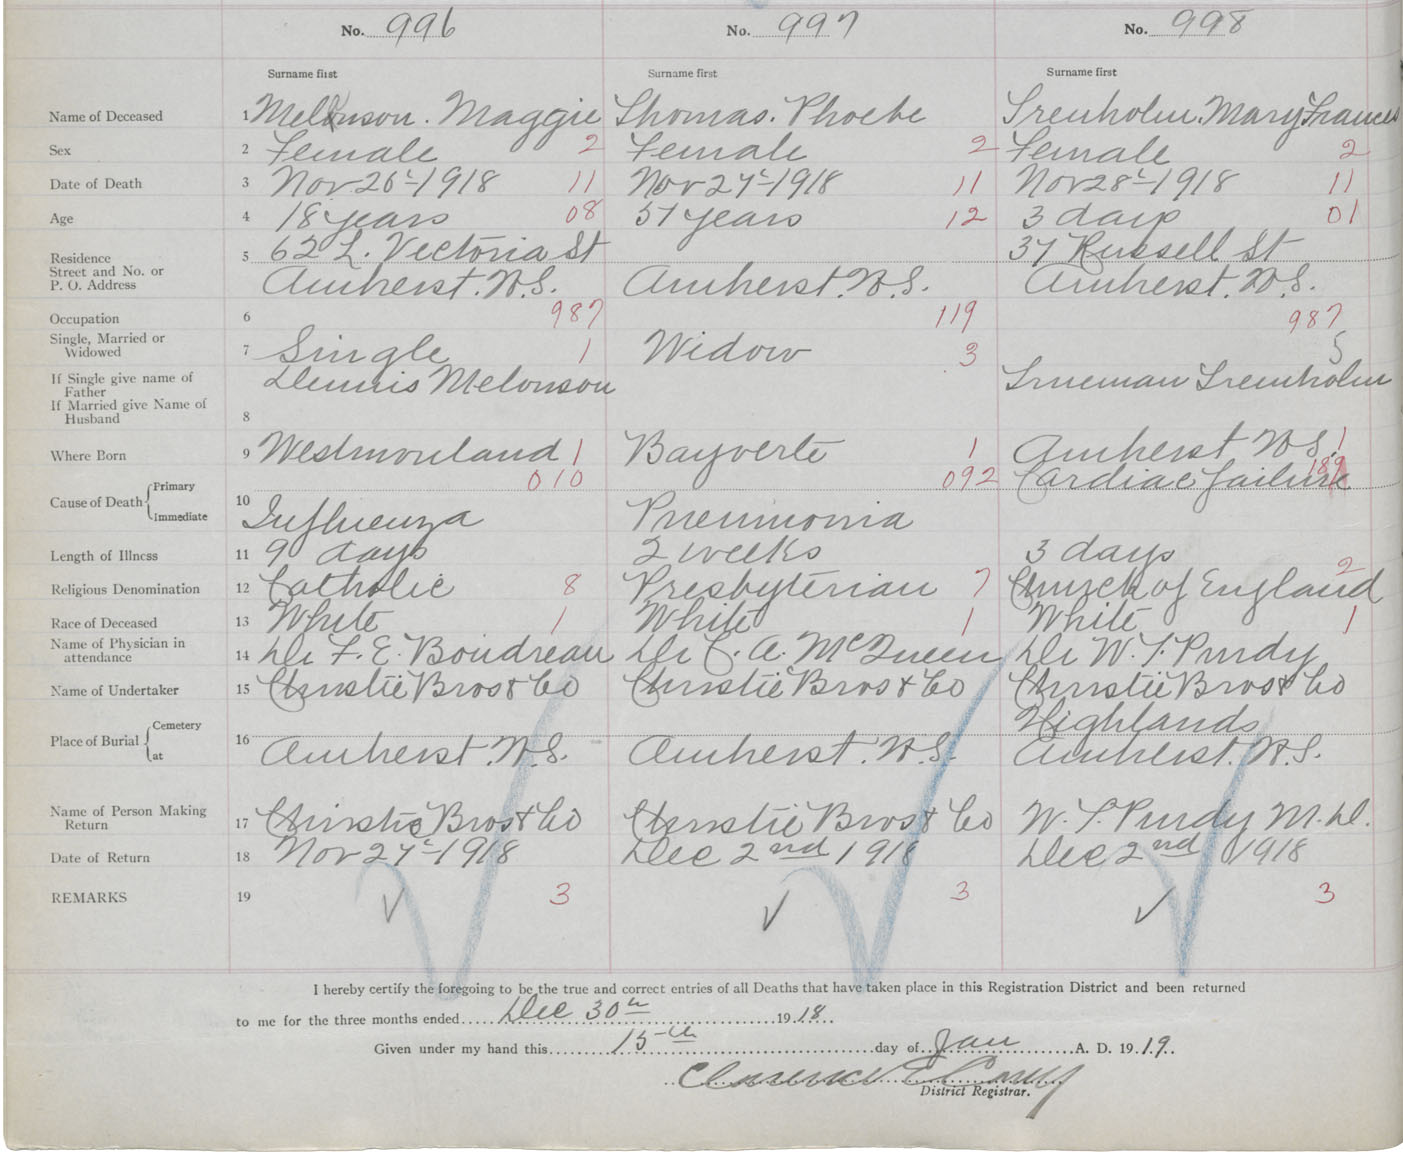 No. 996 No. 997 No. 998
Surname first Surname first Surname first
Name of Deceased 1 Melonson. Maggie Thomas. Phoebe Trenholm. Mary Frances
Sex 2 Female 2 Female 2 Female 2
Date of Death 3 Nov 26th 1918 11 Nov 27th 1918 11 Nov 28th 1918 11
Age 4 18 years 08 57 years 12 3 days 01
Residence 5 62 E. Victoria St 37 Russell St
Street and No. or
P. O. Address Amherst. N.S. Amherst. N.S. Amherst. N.S.
Occupation 6 987 119 987
Single, Married or
Widowed 7 Single 1 Widow 3 5
If Single give name of
Father Dennis Melonson Trueman Trenholm
If Married give Name of
Husband 8
Where Born 9 Westmorland 1 Bayverte 1 Amherst N.S. 1
Cause of Death Primary 010 092 Cardiac failure 189
Immediate 10 Influenza Pneumonia
Length of Illness 11 9 days 2 weeks 3 days
Religious Denomination 12 Catholic 8 Presbyterian 7 Church of England 2
Race of Deceased 13 White 1 White 1 White 1
Name of Physician in
attendance 14 Dr F. E. Boudreau Dr C. A. McQueen Dr W. T. Purdy
Name of Undertaker 15 Christie Bros & Co Christie Bros & Co Christie Bros & Co
Place of Burial Cemetery 16 Highlands
at Amherst. N.S. Amherst. N.S. Amherst. N.S.
Name of Person Making
Return 17 Christie Bros & Co Christie Bros & Co W. T. Purdy M.D.
Date of Return 18 Nov 27th 1918 Dec 2nd 1918 Dec 2nd 1918
REMARKS 19 3 3 3
I hereby certify the foregoing to be the true and correct entries of all Deaths that have taken place in this Registration District and been returned
to me for the three months ended Dec 30th 1918
Given under my hand this 15th day of Jan A. D. 1919
Clarence E
District Registrar.